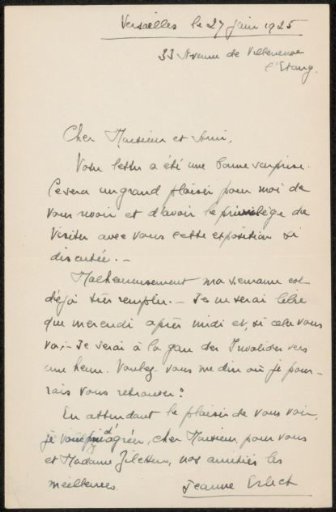 Versailles le 27 juin 1925
33 Avenue de Villeneuve
l'Etang.
Cher Monsieur et Ami,
Votre lettre a été une bonne surprise.
Ce sera un grand plaisir pour moi de
vous revoir et d'avoir le privilège de
visiter avec vous cette exposition si
discutée. -
Malheureusement ma semaine est
déjà très remplie. - Je ne serai libre
que mercredi après midi et, si cela vous
va, - Je serai à la gare des Invalides vers
une heure. Voulez vous me dire où je pour-
rais vous retrouver?
En attendant le plaisir de vous voir,
je vous prie d'agréer, cher Monsieur, pour vous
et Madame Zilcken, nos amitiés les
meilleures.
Jeanne